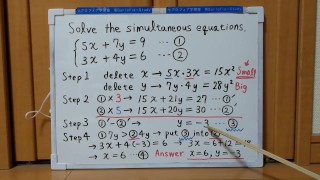 Solve the simultaneous equations.
5x + 7y = 9 … ①
3x + 4y = 6 … ②
Step 1 delete x → 5x·3x = 15x² Small
delete y → 7y·4y = 28y² Big
Step 2 ①×3 → 15x + 21y = 27 … ①'
②×5 → 15x + 20y = 30 … ②'
Step 3 ①'-②' → y = -3 … ③
Step 4 ①7y > ②4y → put ③ into ②
→ 3x + 4·(-3) = 6 → 3x = 6 + 12 =
→ x = 6 … ④ Answer x = 6, y = -3